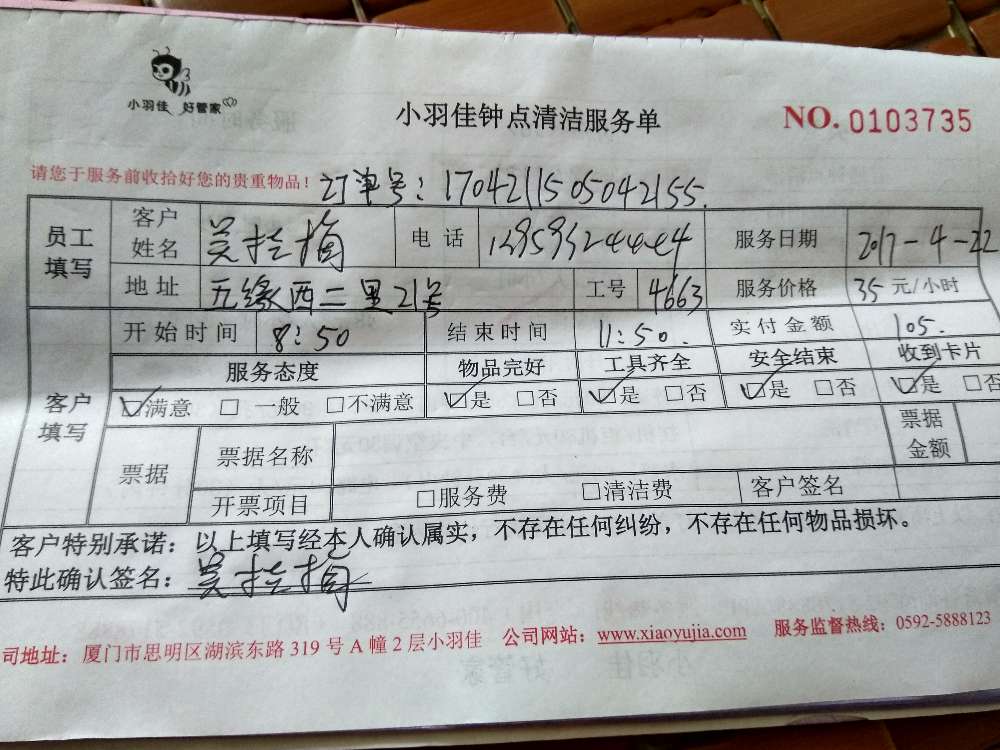 小羽佳 好管家
小羽佳钟点清洁服务单
NO. 0103735
请您于服务前收拾好您的贵重物品！
订单号：1704211505042155.
员工填写 客户姓名 电话 服务日期 2017-4-22
地址 五缘西二里21号 工号 4663 服务价格 35 元/小时
客户填写 开始时间 8:50 结束时间 11:50. 实付金额 105.
服务态度 物品完好 工具齐全 安全结束 收到卡片
☑满意 □一般 □不满意 ☑是 □否 ☑是 □否 ☑是 □否 ☑是 □否
票据 票据名称 票据金额
开票项目 □服务费 □清洁费 客户签名
客户特别承诺：以上填写经本人确认属实，不存在任何纠纷，不存在任何物品损坏。
特此确认签名：
司地址：厦门市思明区湖滨东路 319 号 A 幢 2 层小羽佳 公司网站：www.xiaoyujia.com 服务监督热线：0592-5888123